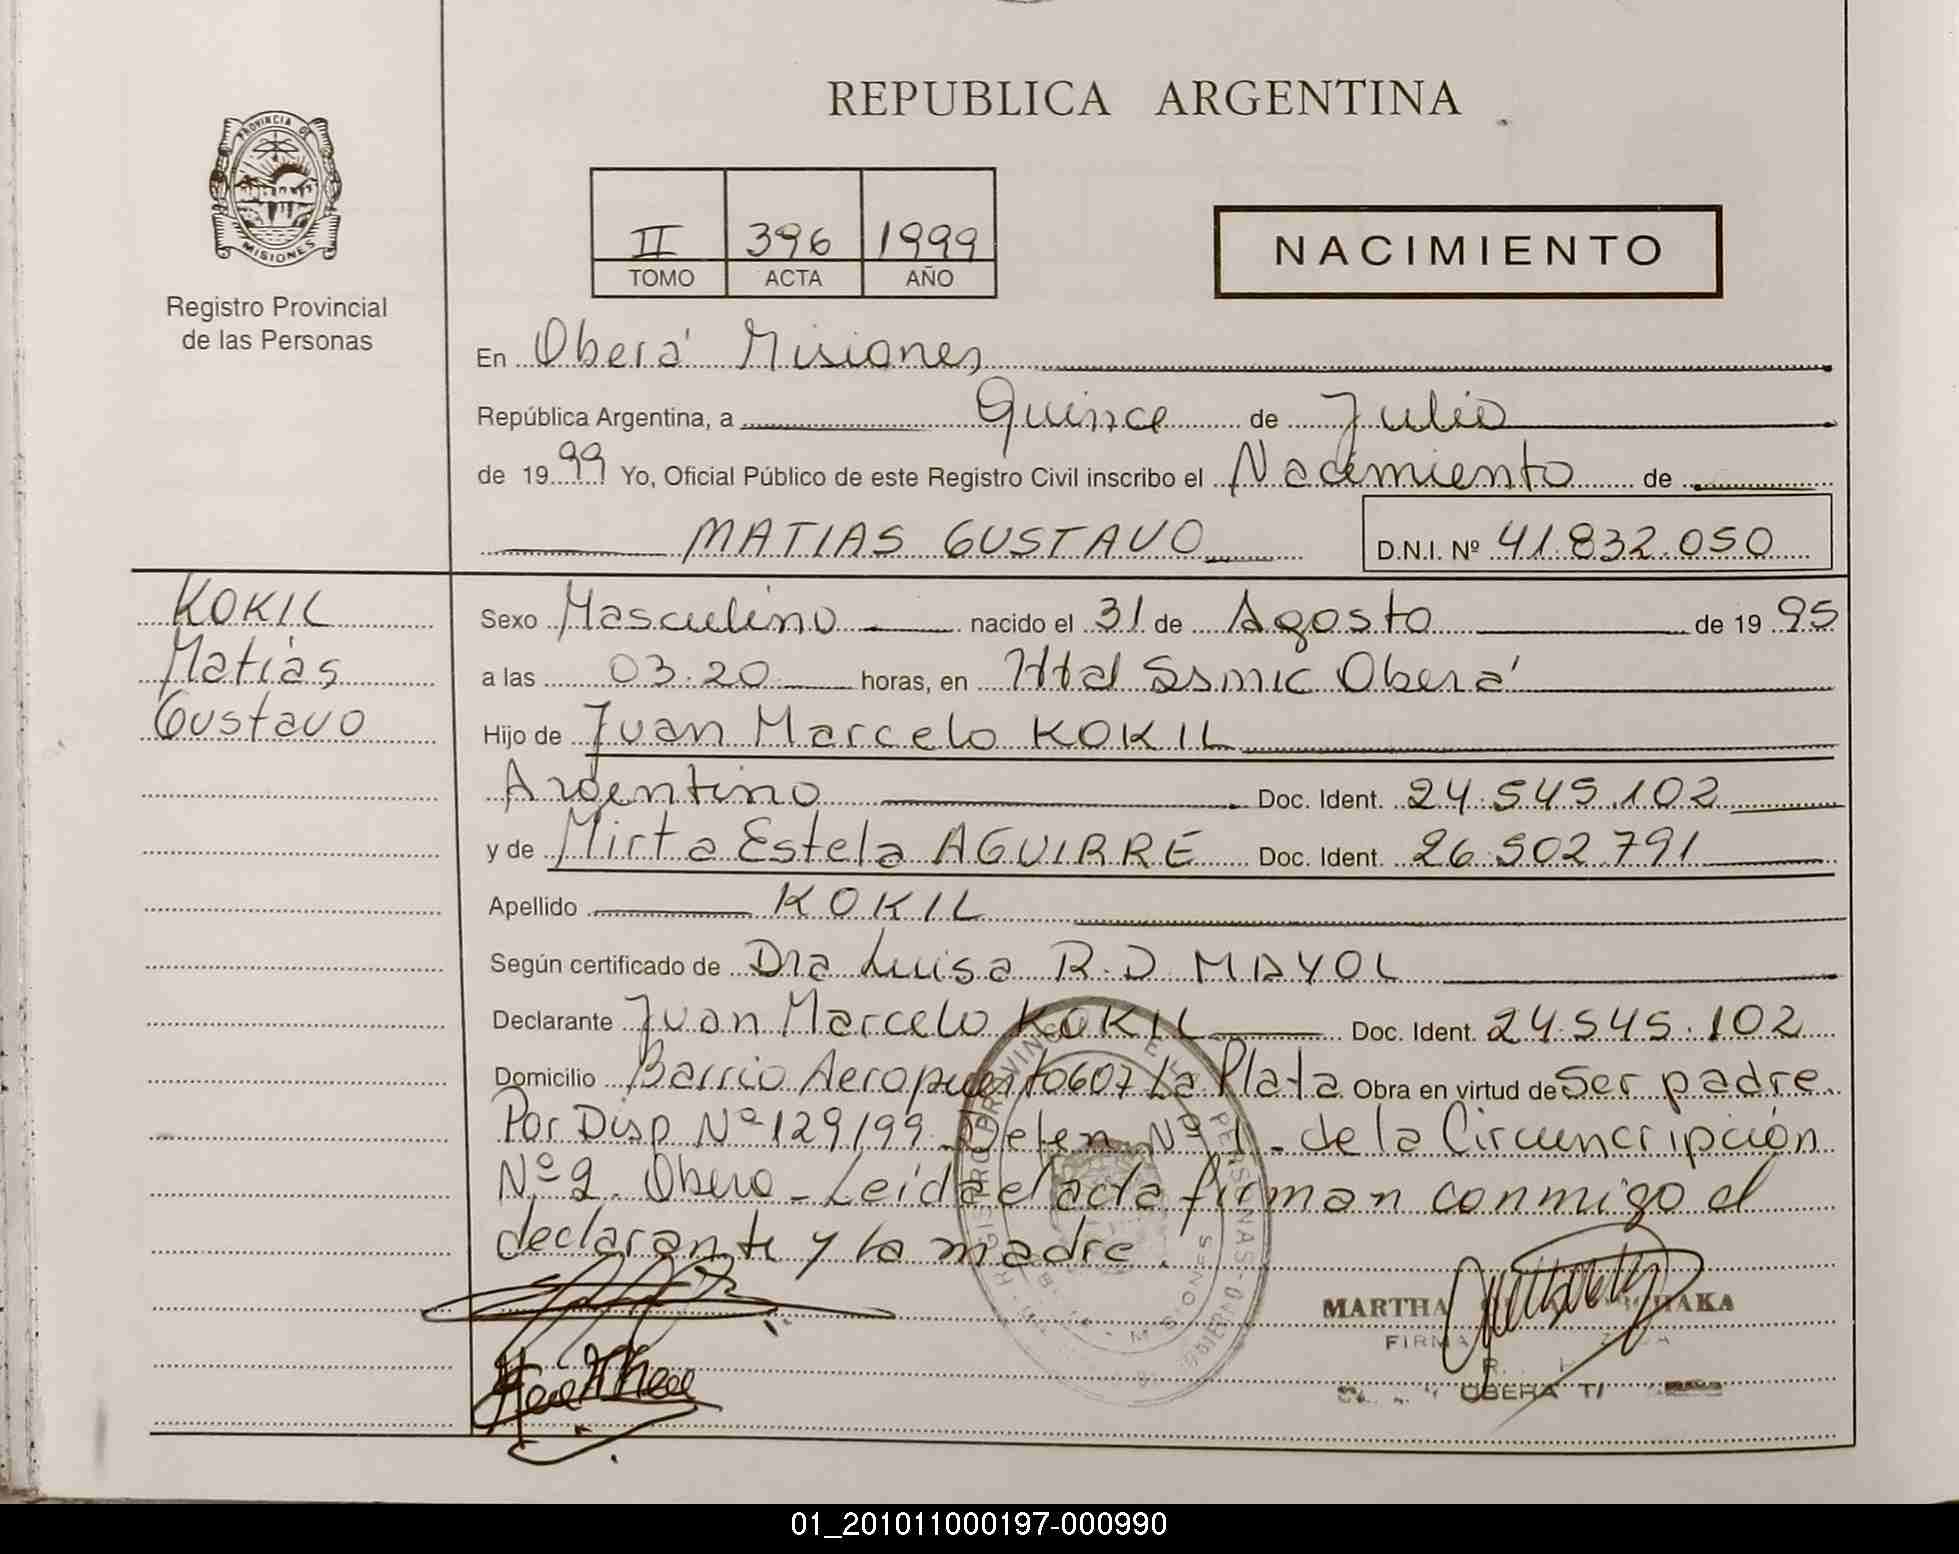 REPUBLICA ARGENTINA
PROVINCIA DE
MISIONES
Registro Provincial
de las Personas
II 396 1999
TOMO ACTA AÑO
NACIMIENTO
En Oberá Misiones
República Argentina, a Quince de Julio
de 1999 Yo, Oficial Público de este Registro Civil inscribo el Nacimiento de
MATIAS GUSTAVO D.N.I. Nº 41.832.050
KOKIL
Matías
Gustavo
Sexo Masculino nacido el 31 de Agosto de 1995
a las 03.20 horas, en Htal Ssmic Oberá
Hijo de Juan Marcelo KOKIL
Argentino Doc. Ident. 24.545.102
y de Mirta Estela AGUIRRE Doc. Ident. 26.502.791
Apellido KOKIL
Según certificado de Dra Luisa R.D MAYOL
Declarante Juan Marcelo KOKIL Doc. Ident. 24.545.102
Domicilio Barrio Aeropuerto 607 La Plata Obra en virtud de Ser padre.
Por Disp Nº 129/99 Nº 1 - de la Circuncripción
Nº 2. Obera - Leída el acta firman conmigo el
declarante y la madre.
MARTHA
OBERA
01_201011000197-000990